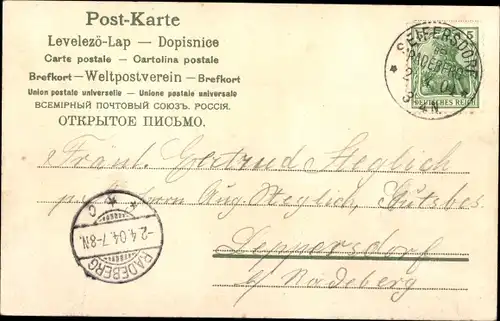 Post-Karte
Levelezö-Lap — Dopisnice
Carte postale — Cartolina postale
Brefkort — Weltpostverein — Brevkort
Union postale universelle — Unione postale universale
ВСЕМІРНЫЙ ПОЧТОВЫЙ СОЮЗЪ. РОССІЯ.
ОТКРЫТОЕ ПИСЬМО.
5
DEUTSCHES REICH
SEIFERSDORF
RADEBERG
04
3-4N
Fräul. Gertrud Steglich
Herrn Aug. Steglich, Gutsbes.
Leppersdorf
b/ Radeberg
RADEBERG
-2.4.04.7-8N.
* C